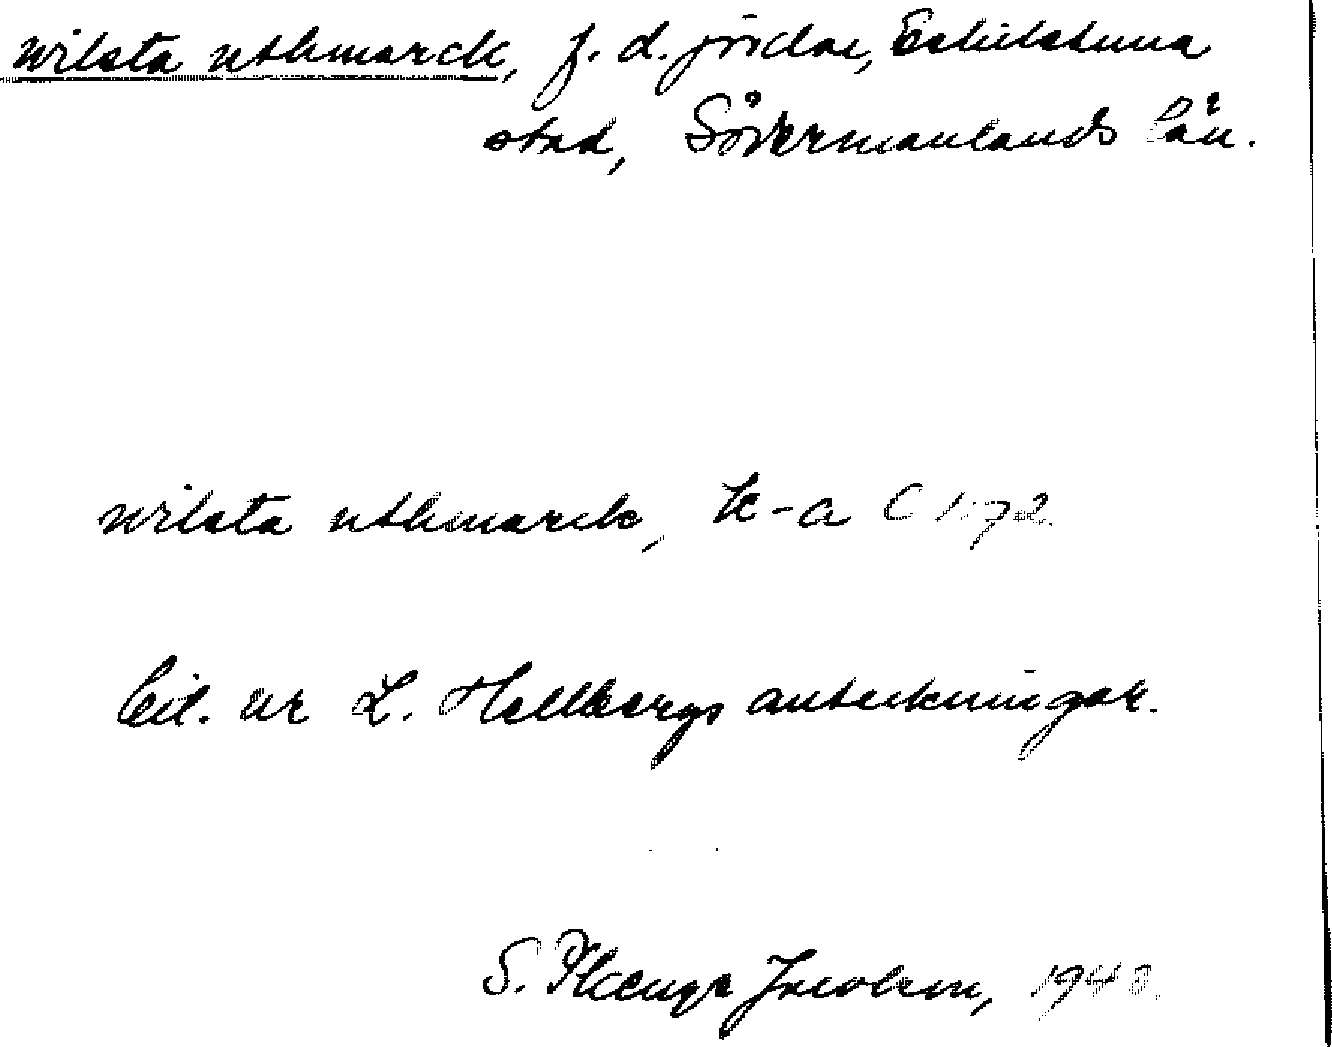 wilsta uthmarck, f. d. jordar, Eskilstuna
stad, Södermanlands län.
wilsta uthmarck, k-a C 1:72.
Cit. ur L. Hellbergs anteckningar.
S. Jacobson, 1948.